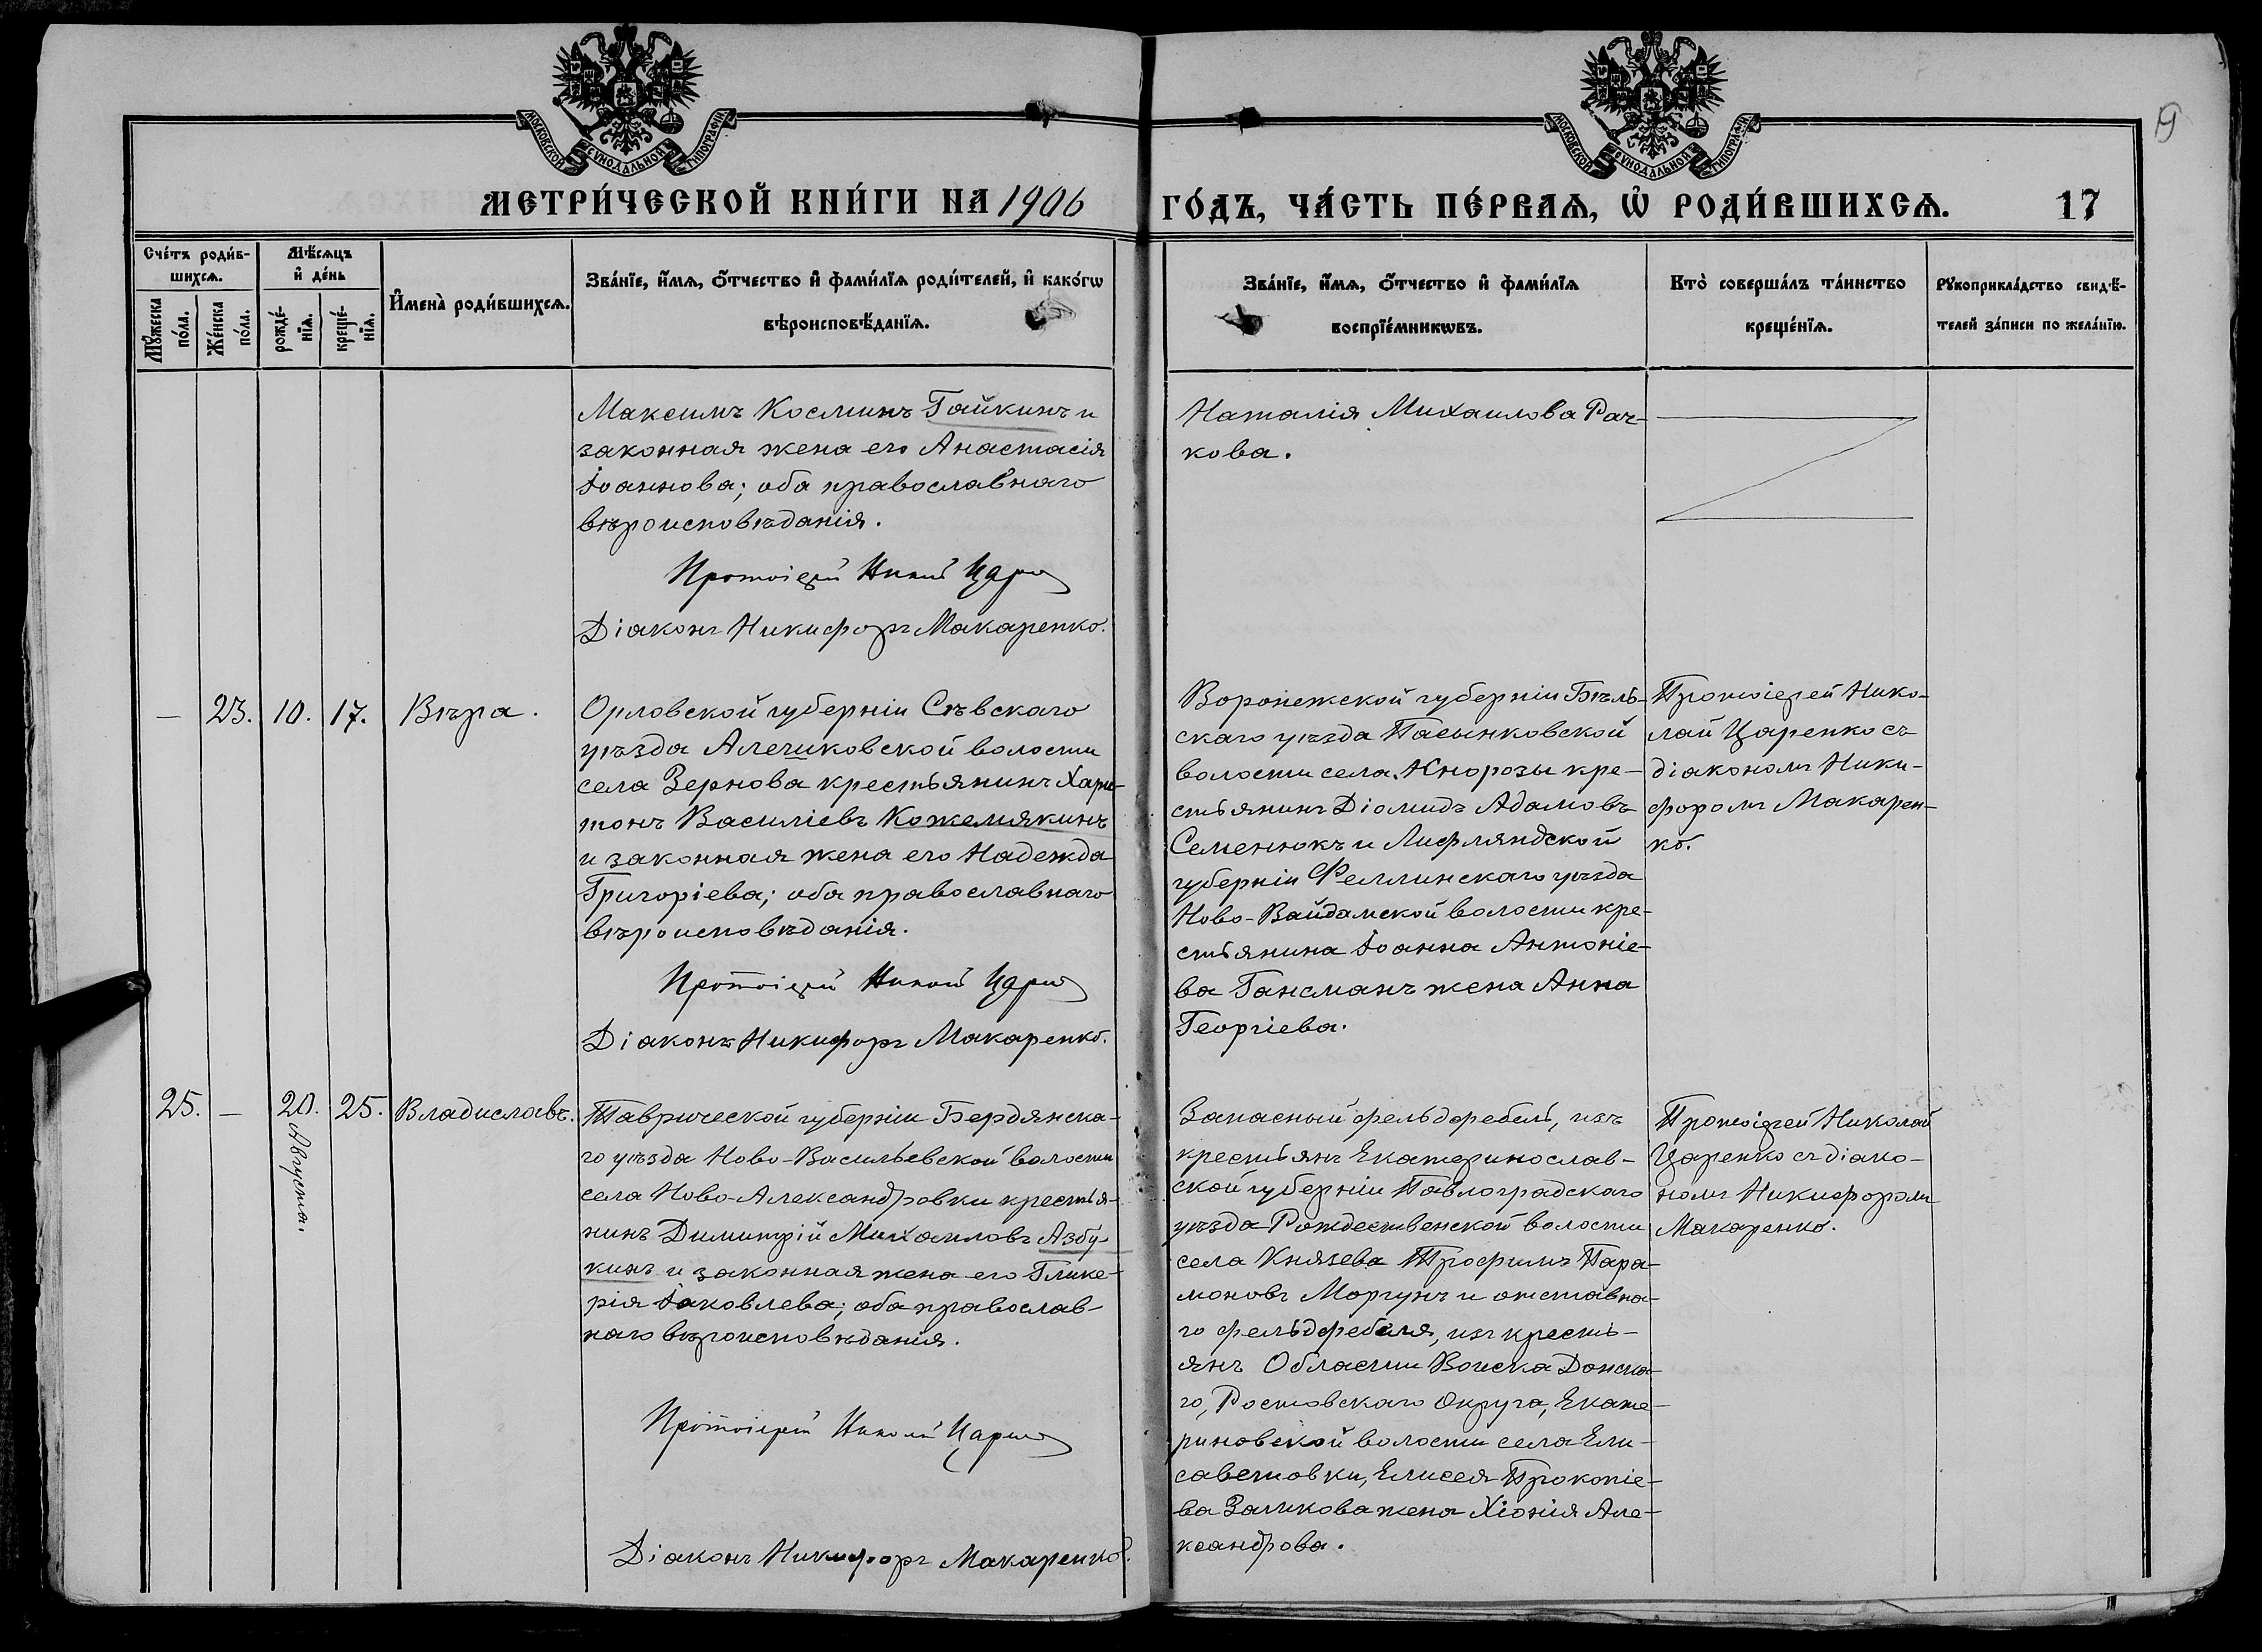 МОСКОВСКОЙ СУНОДАЛЬНОЙ ТИПОГРАФІИ
МОСКОВСКОЙ СУНОДАЛЬНОЙ ТИПОГРАФІИ
19
МЕТРИ́ЧЕСКОЙ КНИ́ГИ НА 1906
ГО́ДЪ, ЧА́СТЬ ПЕ́РВАѦ, Ѡ҆ РОДИ́ВШИХСѦ.
17
Сче́тъ роди́в-
шихсѧ.
Мꙋ́жеска
по́ла.
Же́нска
по́ла.
Мѣ́сѧцъ
и҆ де́нь
рожде́-
нїѧ.
креще́-
нїѧ.
И҆мена̀ роди́вшихсѧ.
Зва́нїе, и҆́мѧ, ѻ҆́тчество и҆ фами́лїѧ роди́телей, и҆ како́гѡ
вѣроисповѣ́данїѧ.
Зва́нїе, и҆́мѧ, ѻ҆́тчество и҆ фами́лїѧ
воспрїе́мникѡвъ.
Кто̀ соверша́лъ та́инство
креще́нїѧ.
Рꙋкоприкла́дство свидѣ́-
телей за́писи по жела́нїю.
Максимъ Косминъ Гайкинъ и
законная жена его Анастасія
Іоаннова; оба православнаго
вѣроисповѣданія.
Протоіерей Николай Царенко
Діаконъ Никифоръ Макаренко.
Наталія Михаилова Рач-
кова.
— 23. 10. 17. Вѣра.
Орловской губерніи Сѣвскаго
уѣзда Алешковской волости
села Зернова крестьянинъ Хари-
тонъ Василіевъ Кожемякинъ
и законная жена его Надежда
Григоріева; оба православнаго
вѣроисповѣданія.
Протоіерей Николай Царенко
Діаконъ Никифоръ Макаренко.
Воронежской губерніи Бѣль-
скаго уѣзда Пасынковской
волости села Кнорозы кре-
стьянинъ Діомидъ Адамовъ
Семенюкъ и Лифляндской
губерніи Феллинскаго уѣзда
Ново-Вайдамской волости кре-
стьянина Іоанна Антоніе-
ва Гансманъ жена Анна
Георгіева.
Протоіерей Нико-
лай Царенко съ
діакономъ Ники-
форомъ Макарен-
ко.
25. — 20. Августа. 25. Владиславъ.
Таврической губерніи Бердянска-
го уѣзда Ново-Васильевской волости
села Ново-Александровки крестья-
нинъ Димитрій Михаиловъ Азбу-
кинъ и законная жена его Глике-
рія Іаковлева; оба православ-
наго вѣроисповѣданія.
Протоіерей Николай Царенко
Діаконъ Никифоръ Макаренко.
Запасный фельдфебель, изъ
крестьянъ Екатеринослав-
ской губерніи Павлоградскаго
уѣзда Рождественской волости
села Князева Трофимъ Пара-
моновъ Моргунъ и отставна-
го фельдфебеля, изъ кресть-
янъ Области Войска Донска-
го, Ростовскаго Округа, Екате-
риновской волости села Ели-
саветовки, Елисея Прокопіе-
ва Заликова жена Хіонія Але-
ксандрова.
Протоіерей Николай
Царенко съ діако-
номъ Никифоромъ
Макаренко.